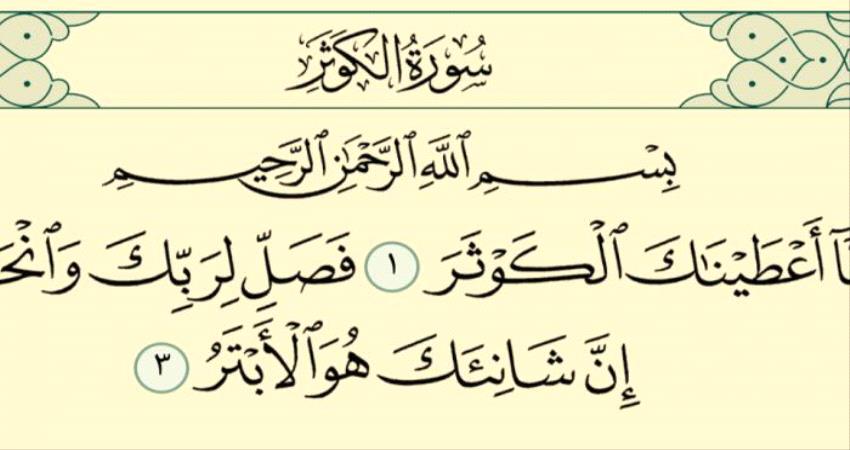 سُورَةُ الكَوْثَرِ
بِسْمِ ٱللَّهِ ٱلرَّحْمَٰنِ ٱلرَّحِيمِ
أَعْطَيْنَٰكَ ٱلْكَوْثَرَ ١ فَصَلِّ لِرَبِّكَ
إِنَّ شَانِئَكَ هُوَ ٱلْأَبْتَرُ ٣